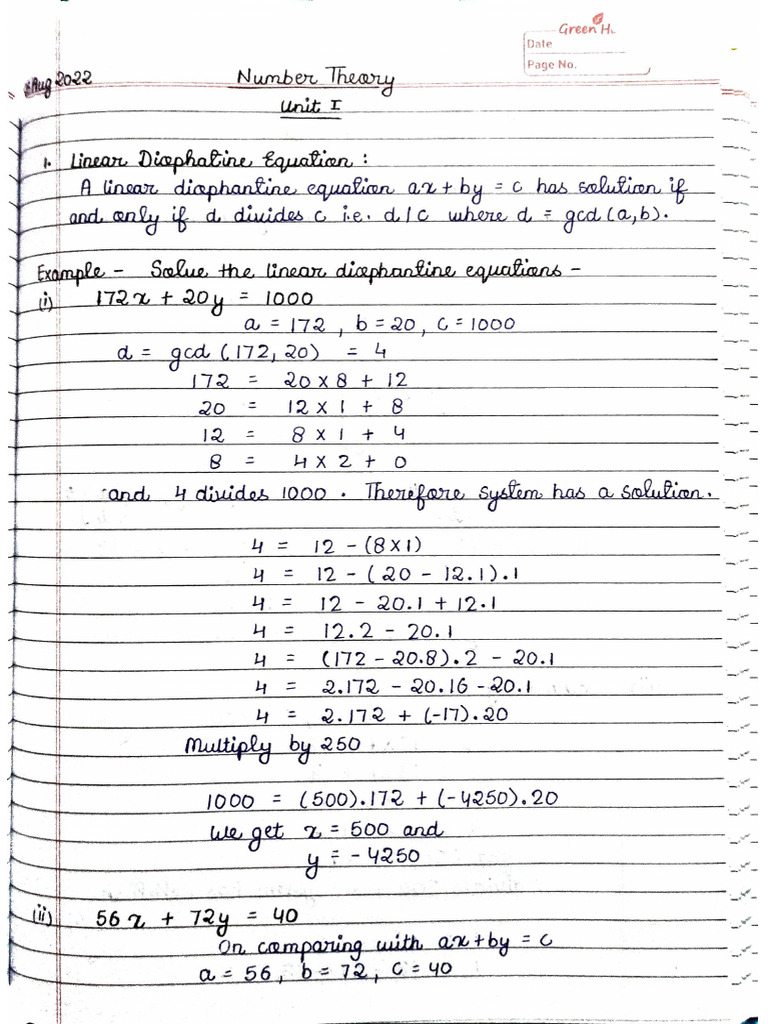 Green H
Date
Page No.
Aug 2022
Number Theory
Unit I
1. Linear Diophatine Equation :
A linear diophantine equation ax + by = c has solution if
and only if d divides c i.e. d/c where d = gcd (a,b).
Example - Solve the linear diophantine equations -
(i) 172x + 20y = 1000
a = 172 , b = 20 , c = 1000
d = gcd (172, 20) = 4
172 = 20 x 8 + 12
20 = 12 x 1 + 8
12 = 8 x 1 + 4
8 = 4 x 2 + 0
and 4 divides 1000 . Therefore system has a solution.
4 = 12 - (8x1)
4 = 12 - (20 - 12.1).1
4 = 12 - 20.1 + 12.1
4 = 12.2 - 20.1
4 = (172 - 20.8).2 - 20.1
4 = 2.172 - 20.16 - 20.1
4 = 2.172 + (-17).20
Multiply by 250
1000 = (500).172 + (-4250).20
We get x = 500 and
y = -4250
(ii) 56x + 72y = 40
On comparing with ax+by = c
a = 56 , b = 72 , c = 40